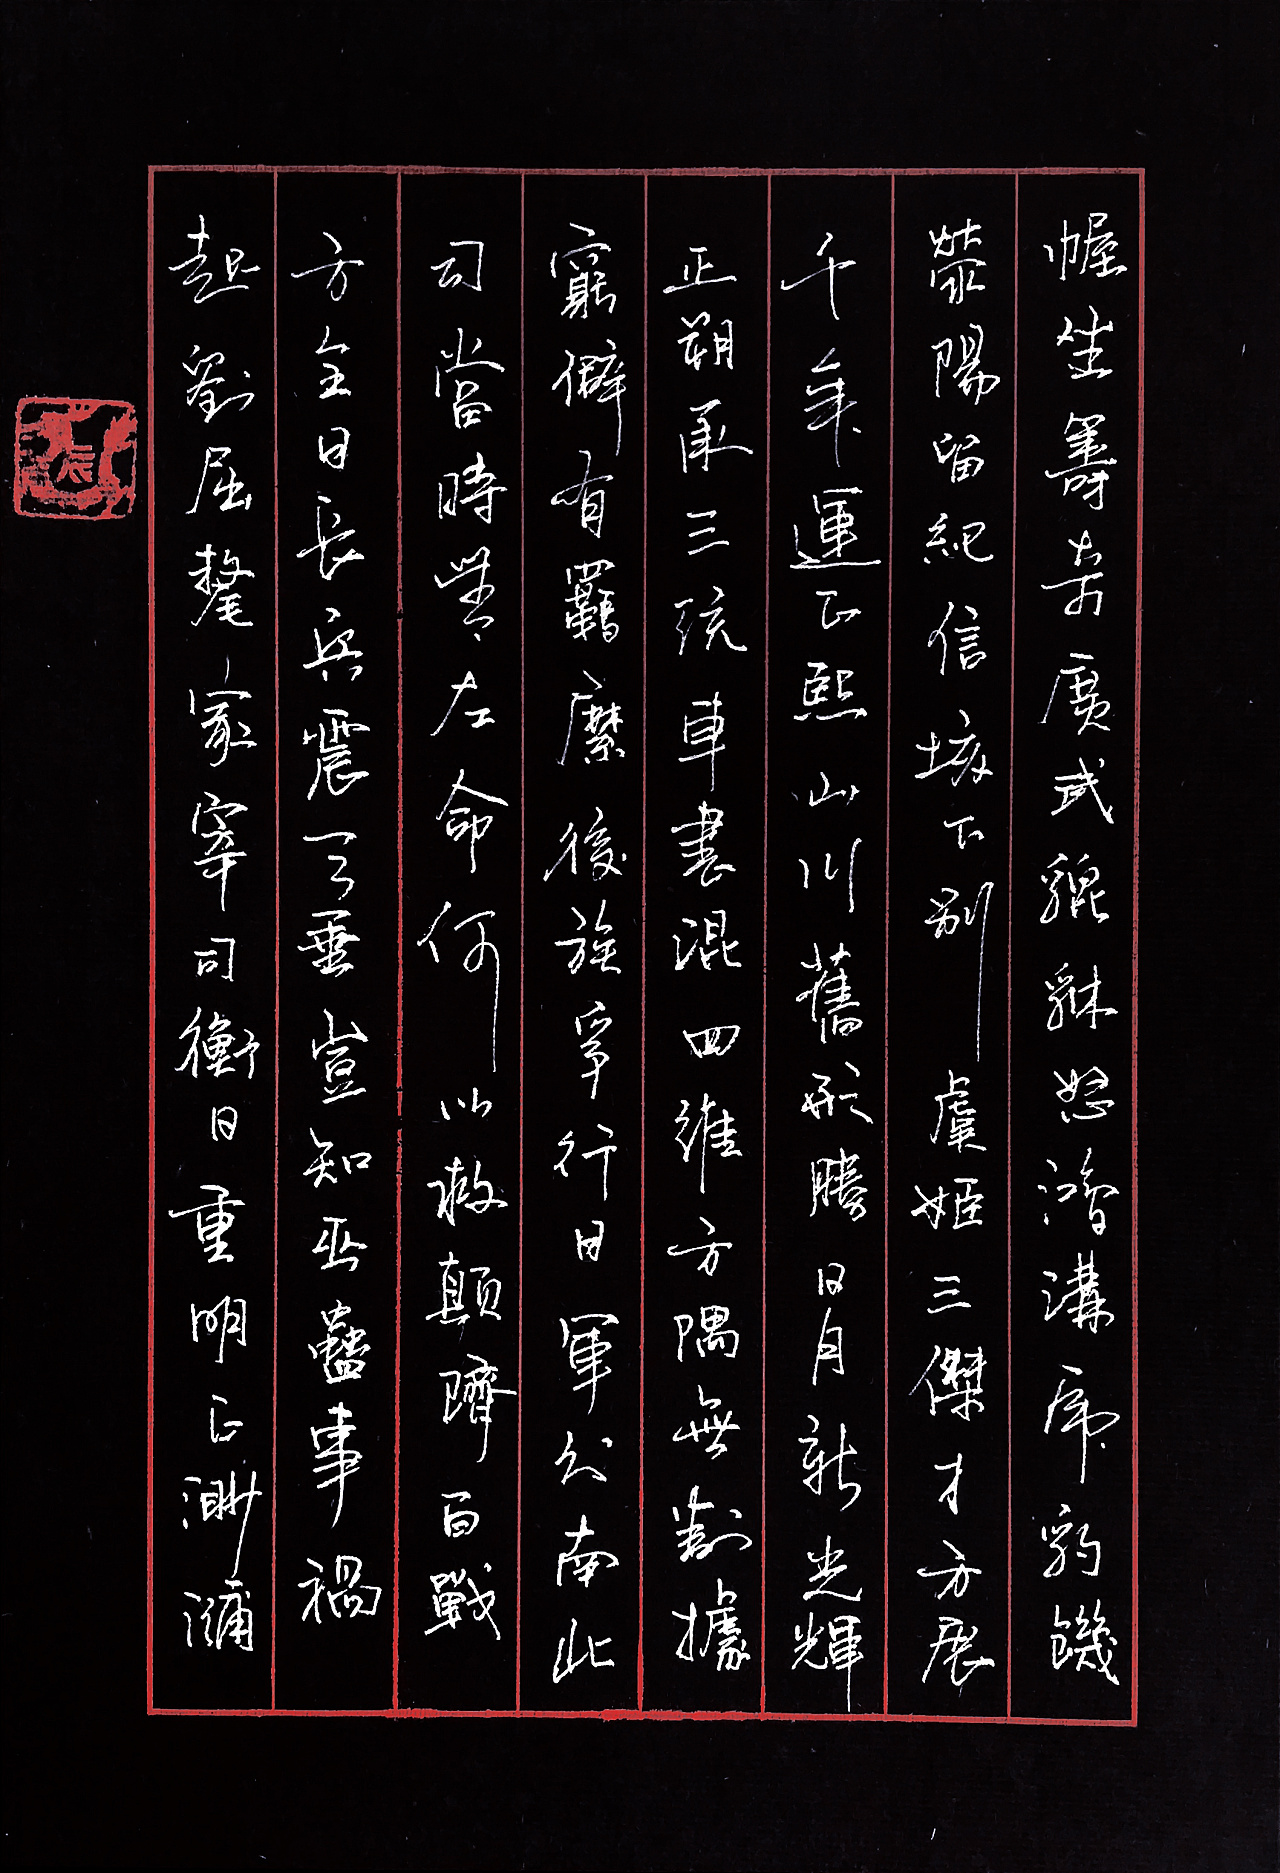 幄坐籌奇廣武貔貅怒鴻溝虎豹饑
滎陽留紀信垓下別虞姬三傑才方展
千年運正熙山川舊形勝日月新光輝
正朔承三統車書混四維方隅無割據
窮僻有羈縻後族爭行日軍分南北
司當時嘆左命何以救顛隮百戰
方全日長兵震四垂豈知巫蠱事禍
起劉屈氂家宰司衡日重明正渺瀰